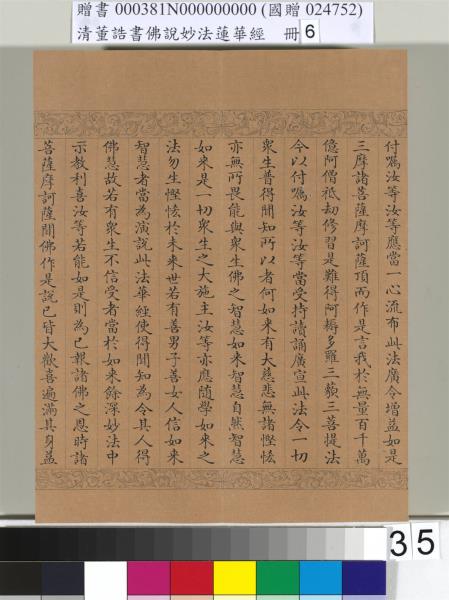 贈書 000381N000000000 (國贈 024752)
清董誥書佛說妙法蓮華經　冊 6
付囑汝等汝等應當一心流布此法廣令增益如是
三摩諸菩薩摩訶薩頂而作是言我於無量百千萬
億阿僧祇劫修習是難得阿耨多羅三藐三菩提法
今以付囑汝等汝等當受持讀誦廣宣此法令一切
眾生普得聞知所以者何如來有大慈悲無諸慳悋
亦無所畏能與眾生佛之智慧如來智慧自然智慧
如來是一切眾生之大施主汝等亦應隨學如來之
法勿生慳悋於未來世若有善男子善女人信如來
智慧者當為演說此法華經使得聞知為令其人得
佛慧故若有眾生不信受者當於如來餘深妙法中
示教利喜汝等若能如是則為已報諸佛之恩時諸
菩薩摩訶薩聞佛作是說已皆大歡喜遍滿其身益
35